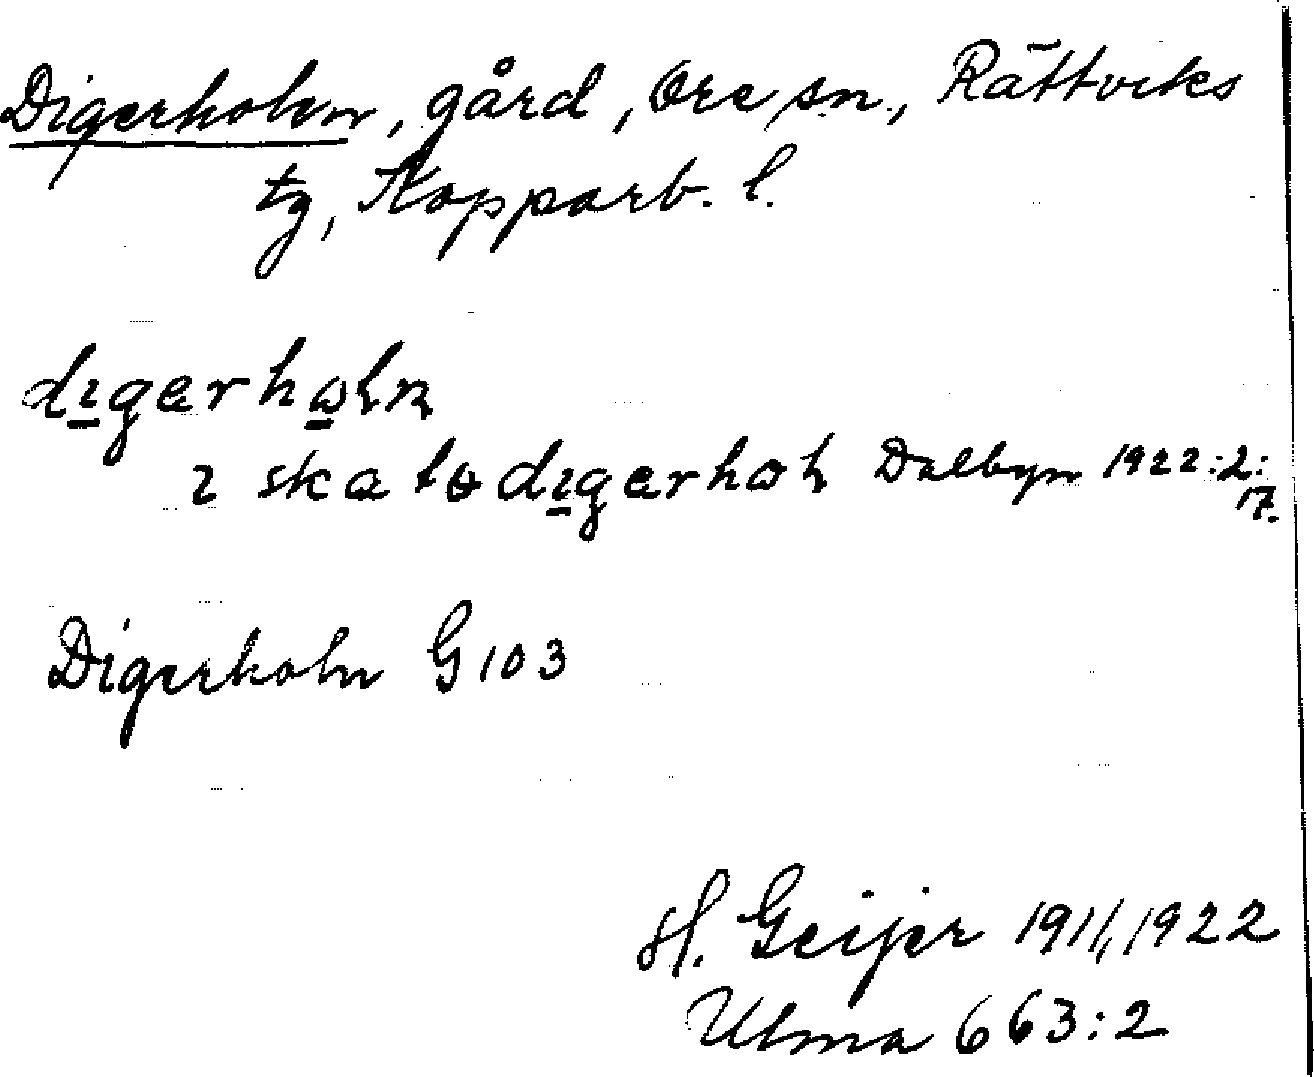 Digerholen, gård, Ore sn., Rättviks
tg, Kopparb. l.
dıgərhɷln
ı ska to dıgərhɷl Dalbyn 1922:2:
17.
Digerholn G 103
H. Geijer 1911, 1922
Ulma 663:2